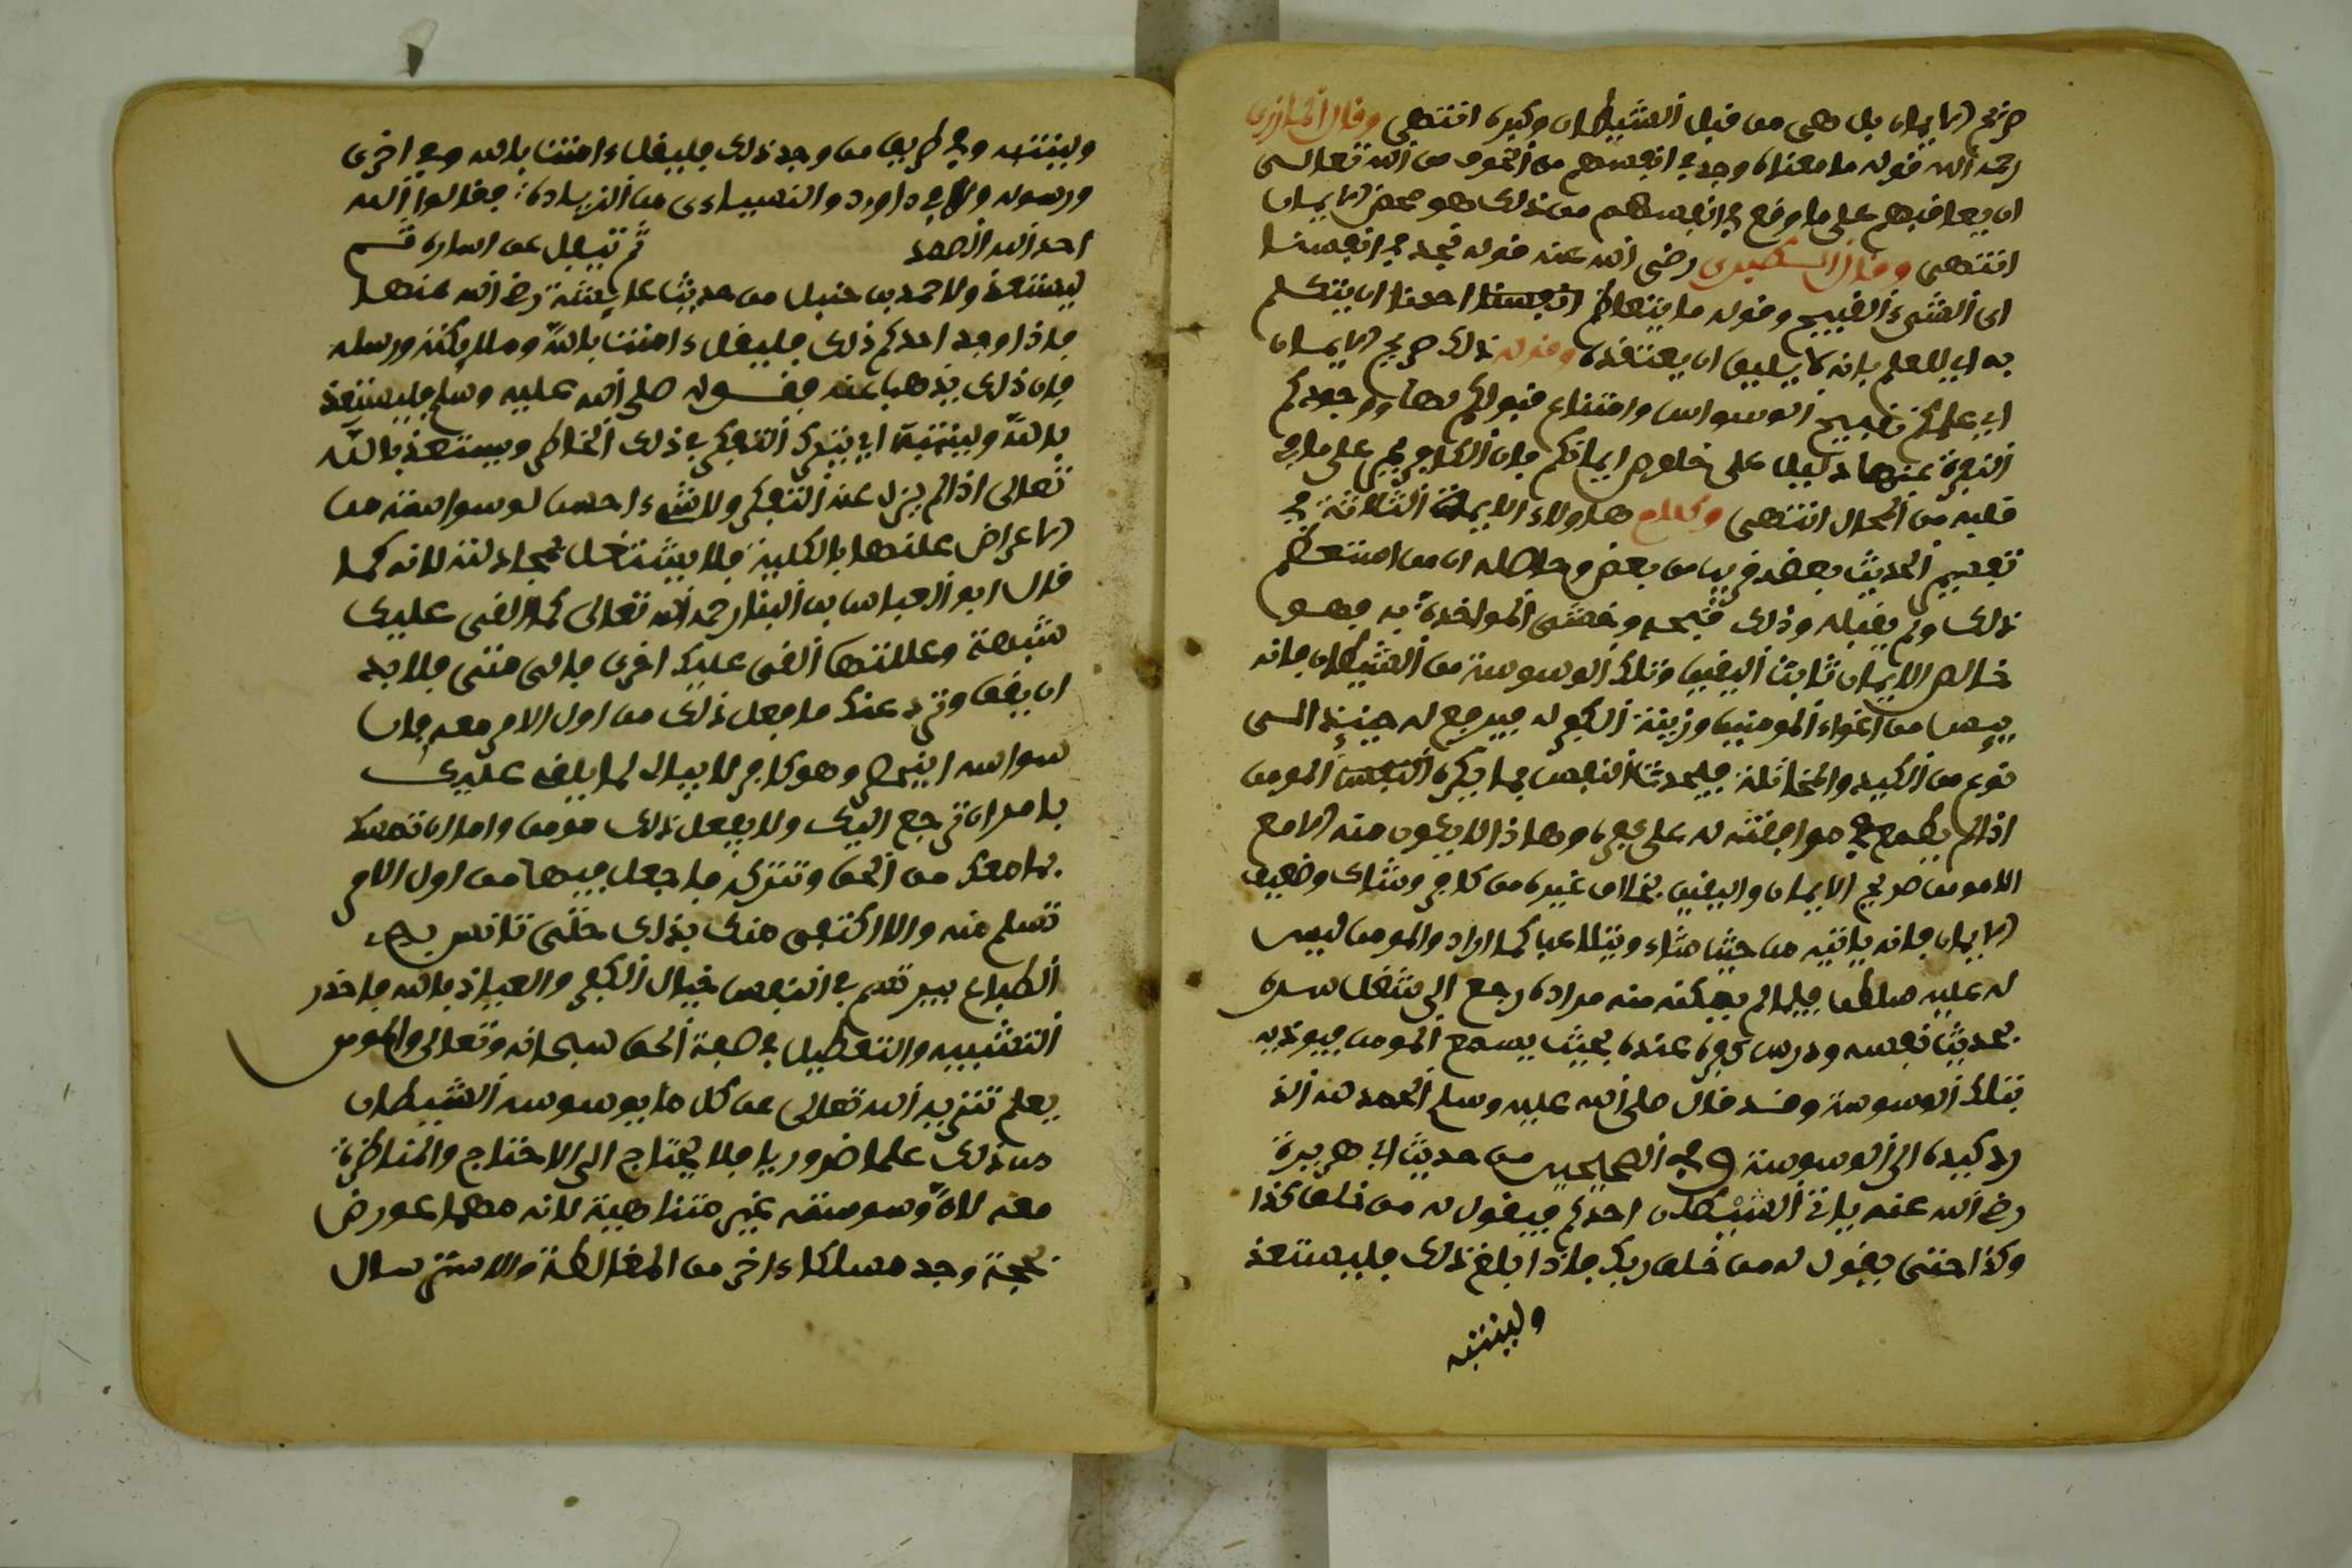 صريح الايمان بل هي من قبل الشيطان وكيده انتهى وقال المازري
رحمه الله قوله ما معناه وجد في انفسهم من الخوف من الله تعالى
ان يعاقبهم على ما وقع في انفسهم من ذلك هو محض الايمان
انتهى وقال رضي الله عنه قوله نجد في انفسنا
اي الشيء القبيح وقوله ما يتعاظم انفسنا احدنا ان يتكلم
به اي للعلم بانه لا يليق ان يعتقده وقوله ذلك صريح الايمان
اي علمكم بقبيح الوسواس وامتناع قبولكم لها ووجودكم
النفرة عنها دليل على خلوص ايمانكم فان الكافر يصر على ما في
قلبه من المحال انتهى وكلام هاولاء الايمة الثلاثة في
تفسير الحديث بعضه قريب من بعض وحاصله ان من استعظم
ذلك ولم يقبله وذلك قبحه وخشى المواخذة به فهو
خالص الايمان ثابت اليقين وتلك الوسوسة من الشيطان فانه
ييس من اغواء المومنين وزينة الكفر له فيرجع له حينئذ الى
نوع من الكيد والمخاتلة فيحدث النفس بما يكره النفس المومن
اذا لم يطمع في موافقته له على كفره وهذا لا يكون منه الا مع
المومن صريح الايمان واليقين بخلاف غيره من كافر وشاك وضعيف
الايمان فانه ياتيه من حيث شاء ويتلاعب كما اراد والمومن ليس
له عليه سلطان فلما لم يمكنه منه مراده رجع الى شغل سره
بحديث نفسه ودرس كفره عنده بحيث يسمع المومن فيوذيه
بتلك الوسوسة وقد قال صلى الله عليه وسلم الحمد لله الذ
رد كيده الى الوسوسة وفي الصحيحين من حديث ابي هريرة
رضي الله عنه ياتي الشيطان احدكم فيقول له من خلق كذا
وكذا حتى يقول له من خلق ربك فاذا بلغ ذلك فليستعذ
ولينته
ولينته وفي طريق من وجد ذلك فليقل ءامنت بالله وفي اخرى
ورسوله ولابي داوود والنسياءي من الزيادة: فقالوا الله
احد الله الصمد ثم تيفل عن يساره ثم
ليستعذ ولاحمد بن حنبل من حديث عايشة رضي الله عنها
فاذا وجد احدكم ذلك فليقل ءامنت بالله وملايكته ورسله
فان ذلك يذهب عنه فقوله صلى الله عليه وسلم فليستعذ
بالله ولينته اي يترك التفكر في ذلك الخاطر ويستعذ بالله
تعالى اذا لم يزل عنه التفكر ولا شيء احسن لوسواسته من
الاعراض عنها بالكلية فلا يشتغل بمجادلته لانه كما
قال ابو العباس بن البنا رحمه الله تعالى كما القى عليك
شبهة وعللتها القى عليك اخرى فالى متى فلا بد
ان يقف وترد عنك ما فعل ذلك من اول الامر معه فان
سواسه وهو كافر لا يبالى لما يلقى عليك
بامر ان ترجع اليك ولا يفعل ذلك مومن واما ان تمسك
بما معك من الحق وتترك ما جعل فيها من اول الامر
تسلم منه والا اكتفى منك بذلك حتى تانس به
الطباع فيرتسم في النفس خيال الكفر والعياذ بالله فاحذر
التشبيه والتعطيل في صفة الحق سبحانه وتعالى والمومن
يعلم تنزيه الله تعالى عن كل ما يوسوسه الشيطان
من ذلك علما ضروريا فلا يحتاج الى الاحتاج والمناظرة
معه لان وسوسته غير متناهية لانه مهما عورض
بحجة وجد مسلكا ءاخر من المغالطة والاسترسال